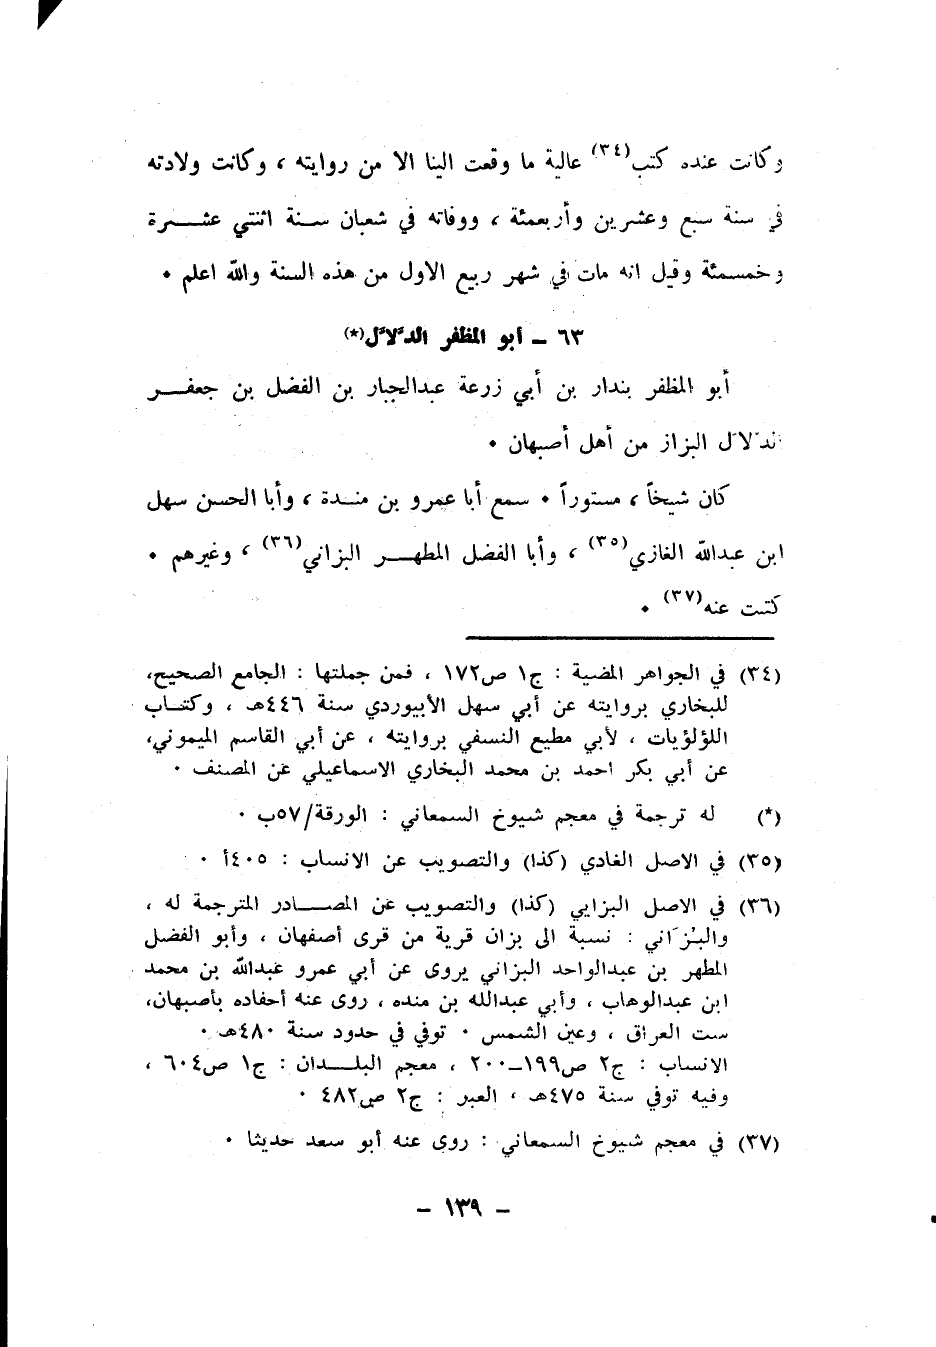 وكانت عنده كتب(٣٤) عالية ما وقعت الينا الا من روايته ، وكانت ولادته
في سنة سبع وعشرين وأربعمئة ، ووفاته في شعبان سنة اثنتي عشرة
وخمسمئة وقيل انه مات في شهر ربيع الاول من هذه السنة والله اعلم ٠
٦٣ ـ أبو المظفر الدَّلاَّل(*)
أبو المظفر بندار بن أبي زرعة عبدالجبار بن الفضل بن جعفر
الدَّلاَّل البزاز من أهل أصبهان ٠
كان شيخاً ، مستوراً ٠ سمع أبا عمرو بن مندة ، وأبا الحسن سهل
ابن عبدالله الغازي(٣٥) ، وأبا الفضل المطهر البزاني(٣٦) ، وغيرهم ٠
كتبت عنه(٣٧) ٠
(٣٤) في الجواهر المضية : ج١ ص١٧٢ ، فمن جملتها : الجامع الصحيح،
للبخاري بروايته عن أبي سهل الأبيوردي سنة ٤٤٦هـ ، وكتاب
اللؤلؤيات ، لأبي مطيع النسفي بروايته ، عن أبي القاسم الميموني،
عن أبي بكر احمد بن محمد البخاري الاسماعيلي عن المصنف ٠
(*) له ترجمة في معجم شيوخ السمعاني : الورقة/٥٧ب ٠
(٣٥) في الاصل الغادي (كذا) والتصويب عن الانساب : ٤٠٥أ ٠
(٣٦) في الاصل البزايي (كذا) والتصويب عن المصادر المترجمة له ،
والبُزَاني : نسبة الى بزان قرية من قرى أصفهان ، وأبو الفضل
المطهر بن عبدالواحد البزاني يروى عن أبي عمرو عبدالله بن محمد
ابن عبدالوهاب ، وأبي عبدالله بن منده ، روى عنه أحفاده بأصبهان،
ست العراق ، وعين الشمس ٠ توفي في حدود سنة ٤٨٠هـ ٠
الانساب : ج٢ ص١٩٩ـ٢٠٠ ، معجم البلدان : ج١ ص٦٠٤ ،
وفيه توفي سنة ٤٧٥هـ ، العبر : ج٢ ص٤٨٢ ٠
(٣٧) في معجم شيوخ السمعاني : روى عنه أبو سعد حديثا ٠
ـ ١٣٩ ـ